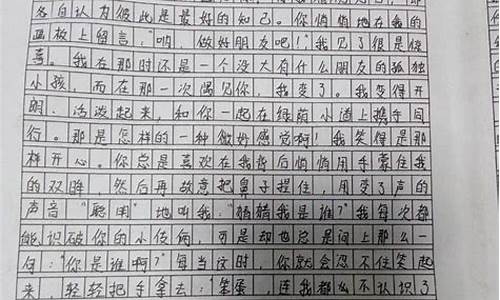 各自认有彼此是最好的知己。你悄悄地在我的
画板上留言:“哟,做好朋友吧!”我见了很是惊
喜。我在那时还是一个没大有什么朋友的孤独
小孩,而在那一次偶见你,我变了。我变得开
朗、活泼起来,和你一起在绿荫小道上携手同
行。那是怎样的一种微妙感觉啊!我笑得是那
样开心。你总是喜欢在我背后悄悄用手蒙住我
的双眸,然后再故意把鼻子捏住,用变了声的
声音“聪明”地叫我:“猜猜我是谁?”我每次都
能识破你的小伎俩,可是却也总是问上那么一
句:“你是谁啊?”每当这时,你就会忍不住笑起
来,轻轻把手拿去:“笨蛋,连我都么不认识了